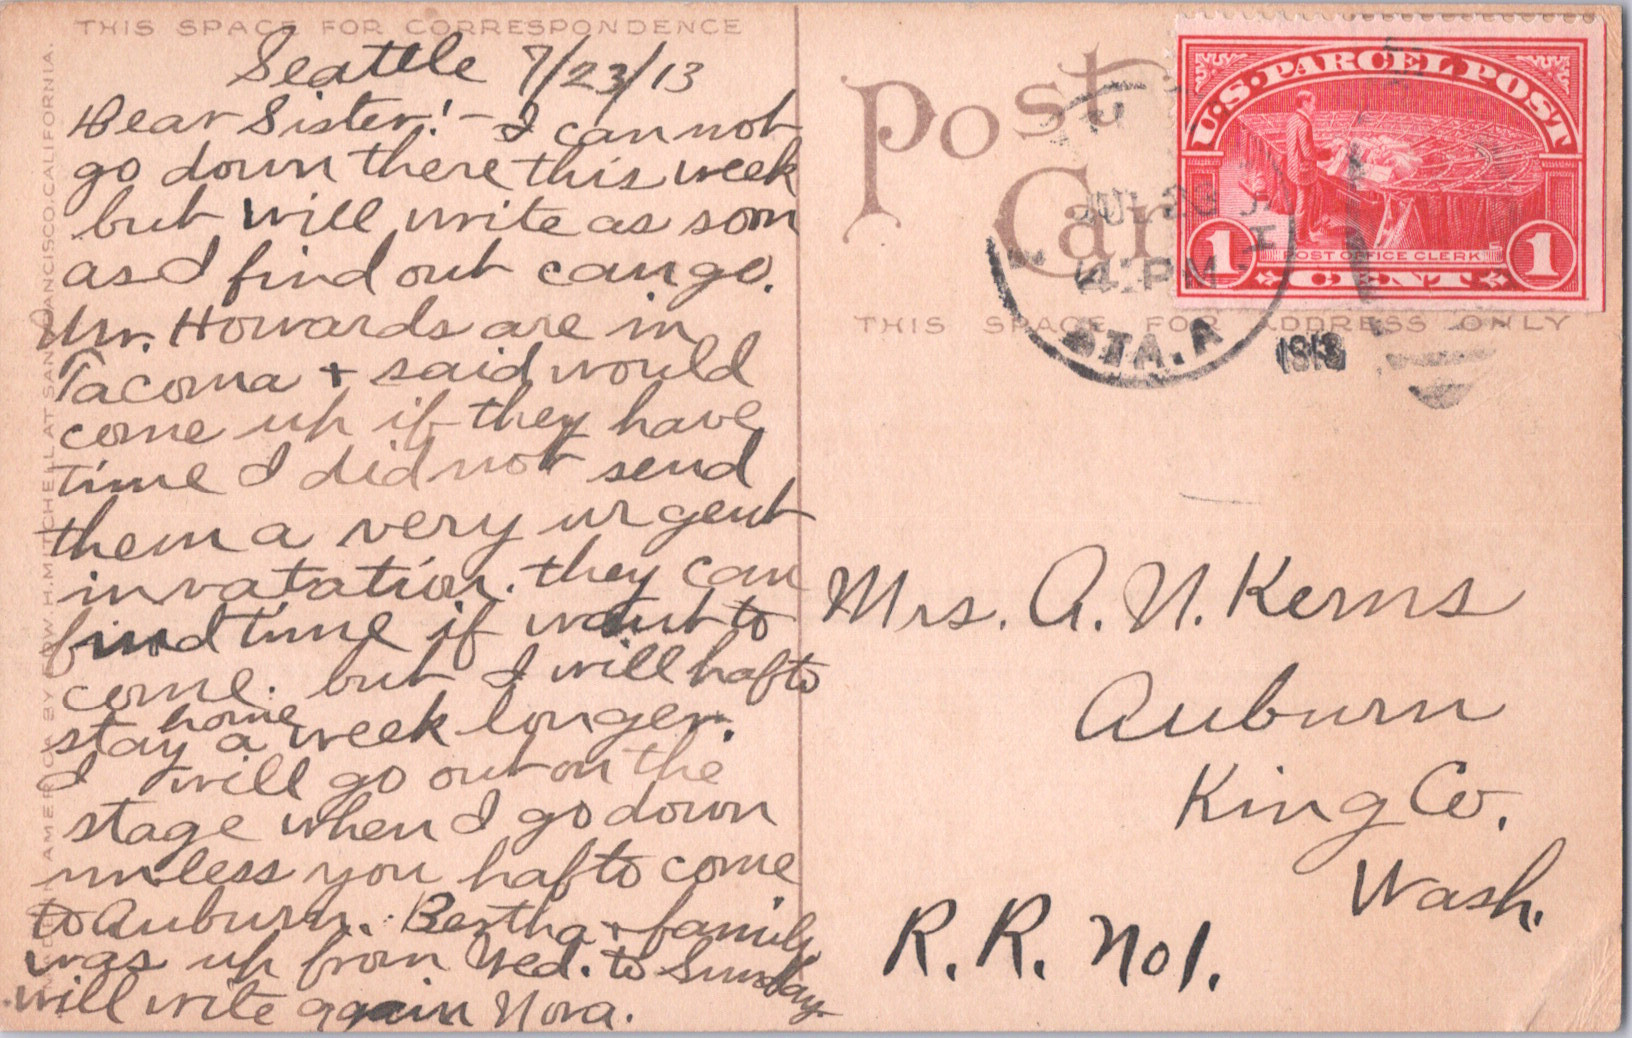 THIS SPACE FOR CORRESPONDENCE
Seattle 7/23/13
Dear Sister!- I can not
go down there this week
but will write as soon
as I find out can go.
Mr. Howards are in
Tacoma + said would
come up if they have
time I did not send
them a very urgent
invatation. they can
find time if want to
come. but I will hafto
home
stay a week longer.
I will go out on the
stage when I go down
unless you hafto come
to Auburn. Bertha + family
was up from Wed. to Sunday
will write again Nora.
BY EDW. H. MITCHELL AT SAN FRANCISCO, CALIFORNIA.
Post
Card
THIS SPACE FOR ADDRESS ONLY
U.S. PARCEL POST
1 1
POST OFFICE CLERK
CENT
JUL 23
PM
STA. A
1913
Mrs. A. N. Kerns
Auburn
King Co.
Wash.
R. R. No 1.